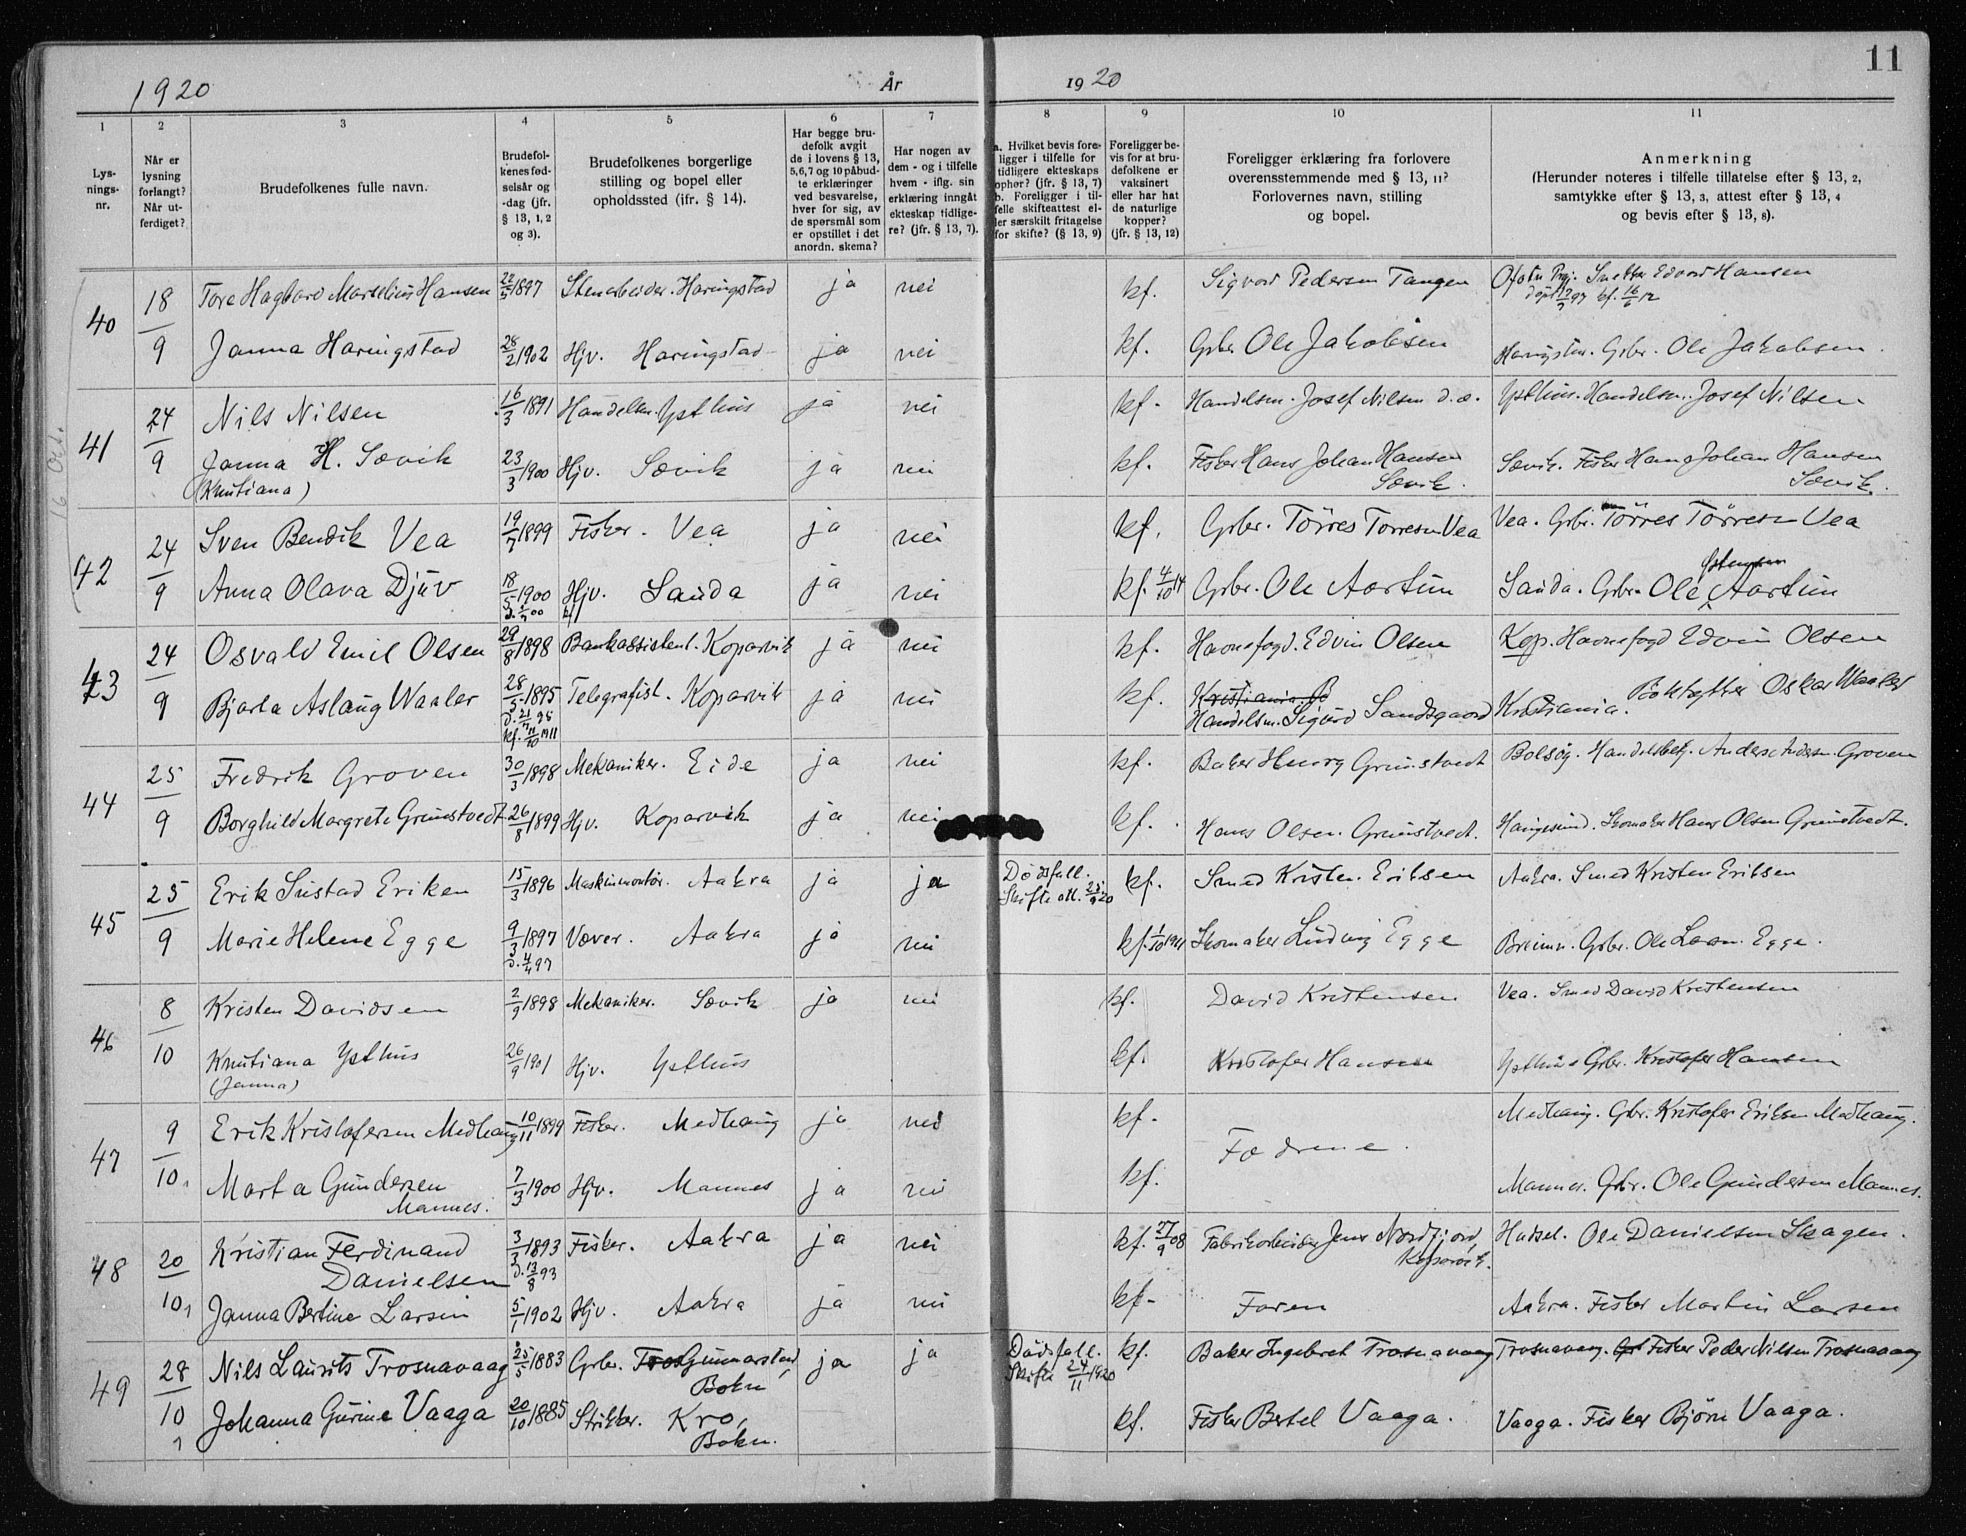 11
1920 År 1920
1 2 3 4 5 6 7 8 9 10 11
Lys-
nings-
nr.
Når er
lysning
forlangt?
Når ut-
ferdiget?
Brudefolkenes fulle navn.
Brudefol-
kenes fød-
selsår og
-dag (jfr.
§ 13, 1, 2
og 3).
Brudefolkenes borgerlige
stilling og bopel eller
opholdssted (ifr. § 14).
Har begge bru-
defolk avgit
de i lovens § 13,
5,6,7 og 10 påbud-
te erklæringer
ved besvarelse,
hver for sig, av
de spørsmål som
er opstillet i det
anordn. skema?
Har nogen av
dem - og i tilfelle
hvem - iflg. sin
erklæring inngåt
ekteskap tidlige-
re? (jfr. § 13, 7).
a. Hvilket bevis fore-
ligger i tilfelle for
tidligere ekteskaps
ophør? (jfr. § 13, 7)
b. Foreligger i til-
felle skifteattest el-
ler særskilt fritagelse
for skifte? (§ 13, 9)
Foreligger be-
vis for at bru-
defolkene er
vaksinert
eller har hat
de naturlige
kopper?
(jfr. § 13, 12)
Foreligger erklæring fra forlovere
overensstemmende med § 13, 11?
Forlovernes navn, stilling
og bopel.
Anmerkning
(Herunder noteres i tilfelle tillatelse efter § 13, 2,
samtykke efter § 13, 3, attest efter § 13, 4
og bevis efter § 13, 8).
16 Oct.
40 18/9 Tore Hagbard Marselius Hansen 22/5 1897 Stenarbeider. Haringstad ja nei kf. Sigvard Pedersen Tangen Edvard Hansen
kf. 16/6 12
Janna Haringstad 28/2 1902 Hjv. Haringstad ja nei kf. Grbr. Ole Jakobsen Grbr. Ole Jakobsen.
41 24/9 Nils Nilsen 16/3 1891 Handelsm. Ysthus ja nei kf. Handelsm. Josef Nilsen d.æ. Ysthus. Handelsm. Josef Nilsen
Janna H. Sævik 23/3 1900 Hjv. Sævik ja nei kf. Fisker Hans Johan Hansen Sævik. Fisker Hans Johan Hansen
(Knutiana) Sævik. Sævik.
42 24/9 Sven Bendik Vea 19/7 1899 Fisker. Vea ja nei kf. Grbr. Törres Torresen Vea Vea. Grbr. Törres Törresen Vea
Østensen
Anna Olava Djuv 18/5 1900 Hjv. Sauda ja nei kf. 4/10 14 Grbr. Ole Aartun Sauda. Grbr. Ole Aartun
43 24/9 Osvald Emil Olsen 29/8 1898 Bankassistent. Kopervik ja nei kf. Havnefogd. Edvin Olsen Kop. Havnefogd Edvin Olsen
Bjarla Aslaug Waaler 28/5 1895 Telegrafist. Kopervik ja nei kf. Kristiania B Kristiania. Boktrykker Oskar Waaler
d. 21/7 95 Handelsm. Sigurd Sandsgaard
kf. 11/10 1911
44 25/9 Fredrik Groven 30/3 1898 Mekaniker. Eide ja nei kf. Baker Henry Grimstvedt Bolsøy. Anders Groven
Borghild Margrete Grimstvedt 26/8 1899 Hjv. Kopervik ja nei kf. Hans Olsen Grimstvedt. Haugesund. Skomaker Hans Olsen Grimstvedt.
45 25/9 Erik Sustad Eriksen 15/3 1896 Maskinmontør. Aakra ja ja Dødsfall. kf. Smed Kristen Eriksen Aakra. Smed Kristen Eriksen
Skifte att. 25/9 20
Marie Helene Egge 9/3 1897 Væver. Aakra ja nei kf. 1/10 1911 Skomaker Ludvig Egge Grbr. Ole Egge.
d. 4/4 97
46 8/10 Kristen Davidsen 2/9 1898 Mekaniker. Sævik ja nei kf. David Kristensen Vea. Smed David Kristensen
Knutiana Ysthus 26/9 1901 Hjv. Ysthus kf. Kristofer Hansen Ysthus Grbr. Kristofer Hansen
(Janna)
47 9/10 Erik Kristofersen Medhaug 10/11 1899 Fisker. Medhaug ja nei kf. Fædrene. Medhaug. Grbr. Kristofer Eriksen Medhaug.
Marta Gundersen 7/3 1900 Hjv. Mannes ja nei kf. Mannes. Grbr. Ole Gundersen Mannes.
Mannes.
48 20/10 Kristian Ferdinand 3/7 1893 Fisker. Aakra ja nei kf. 27/9 08 Fabrikarbeider Jens Nordfjord, Hadsel. Ole Danielsen Skagen.
Danielsen d. 13/8 93 Kopervik.
Janna Bertine Larsen 5/1 1902 Hjv. Aakra ja nei kf. Faren Aakra. Fisker Martin Larsen
49 28/10 Nils Laurits Trosnavaag 25/5 1883 Grbr. Tros Gunnarstad, ja ja Dødsfall. kf. Baker Ingebret Trosnavaag Trosnavaag. Fisker Peder Nilsen Trosnavaag
Bokn Skifte 24/11 1920
Johanna Gurine Vaaga 20/10 1885 Strikker. Kro, kf. Fisker Bertel Vaaga. Vaaga. Fisker Bjørn Vaaga.
Bokn.